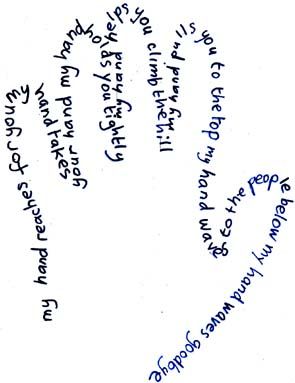 my hand reaches for yours
my hand takes
your hand my hand
holds you tightly
my hand helps
you climb the hill
my hand pulls
you to the top my hand waves
to the people
below my hand waves goodbye